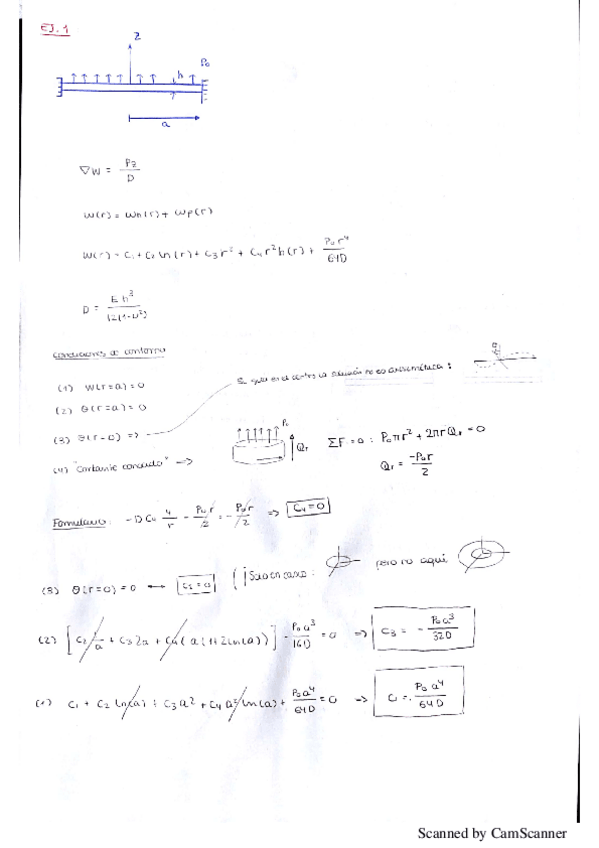 EJ. 1
z
P₀
h
a
∇w = Pz / D
w(r) = wh(r) + wp(r)
w(r) = C₁ + C₂ ln(r) + C₃ r² + C₄ r² ln(r) + P₀ r⁴ / 64D
D = E h³ / 12(1-ν²)
Condiciones de contorno
(1) w(r=a) = 0
Si giro en el centro la situación no es axisimétrica:
(2) θ(r=a) = 0
(3) θ(r=0) =>
(4) "Cortante conocido" ->
P₀
Qr
ΣF=0 : P₀πr² + 2πr Qr = 0
Qr = -P₀r / 2
Formulario: -D C₄ 4/r - P₀r/2 = -P₀r/2 => C₄=0
(3) θ(r=0) = 0 C₂=0 (¡Solo en casos: pero no aquí
(2) [C₂/a + C₃2a + C₄(a(1+2ln(a))] - P₀a³/16D = 0 => C₃ = - P₀a³/32D
(1) C₁ + C₂ ln(a) + C₃a² + C₄a² ln(a) + P₀a⁴/64D = 0 => C₁ = P₀a⁴/64D
Scanned by CamScanner